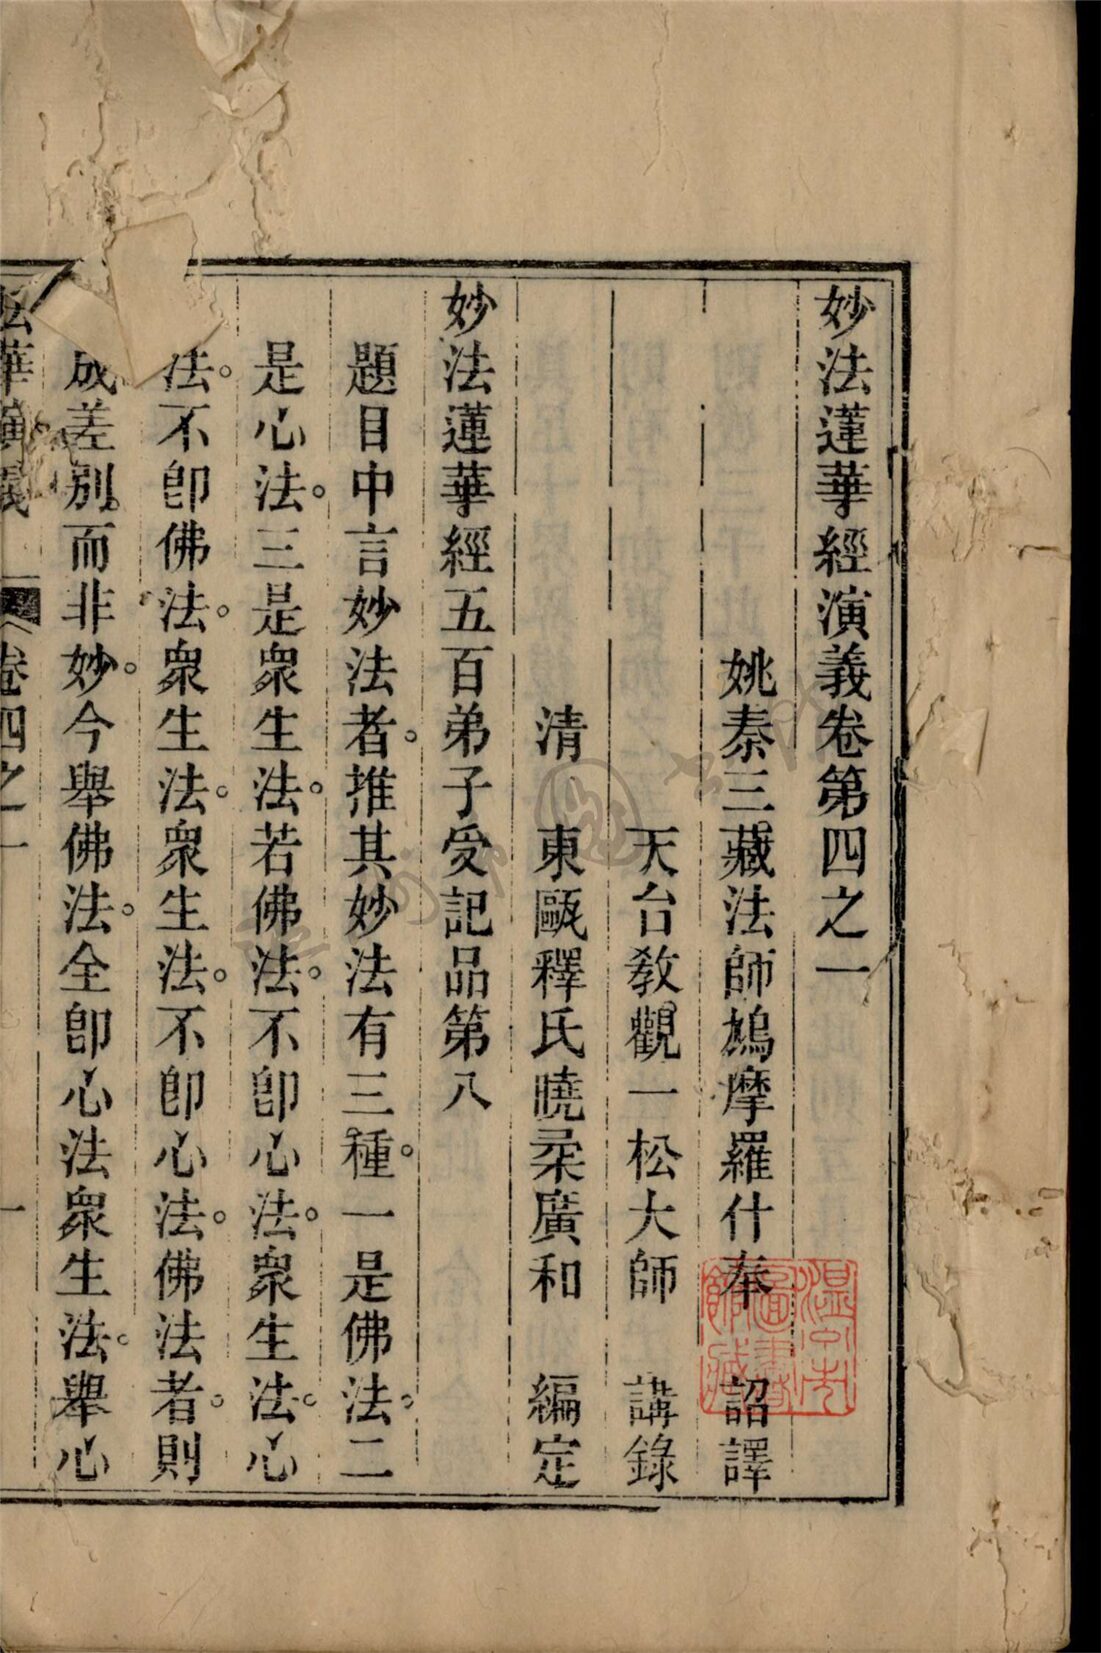 妙法蓮華經演義卷第四之一
姚秦三藏法師鳩摩羅什奉 詔譯
天台教觀一松大師 講錄
清 東甌釋氏曉柔廣和 編定
妙法蓮華經五百弟子受記品第八
題目中言妙法者。推其妙法有三種。一是佛法。二
是心法。三是眾生法。若佛法。不卽心法。眾生法。心
法。不卽佛法。眾生法。眾生法。不卽心法。佛法者。則
成差別。而非妙。今舉佛法。全卽心法眾生法。舉心
法華演義 卷四之一 一
溫州市圖書館藏